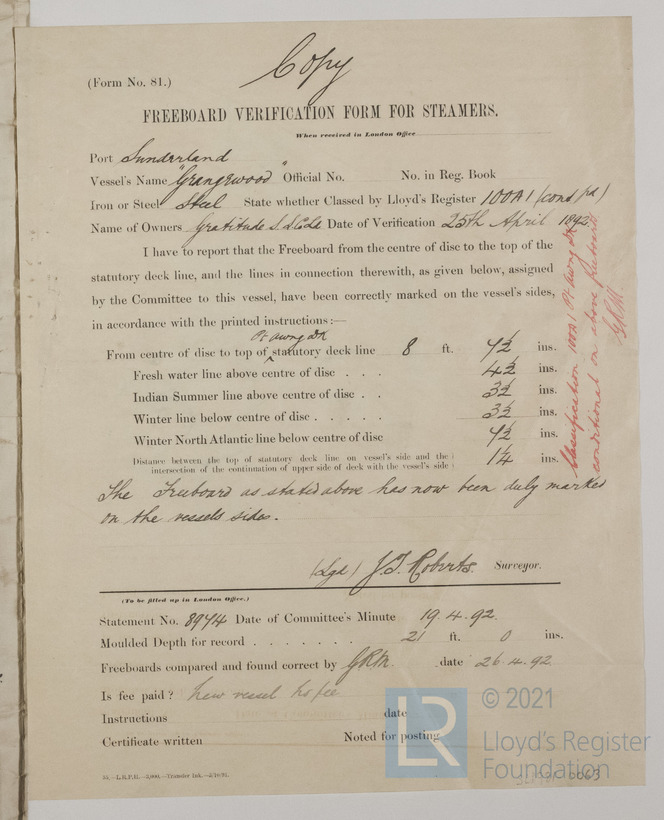 Copy
(Form No. 81.)
FREEBOARD VERIFICATION FORM FOR STEAMERS.
When received in London Office
Port Sunderland
Vessel's Name "Grangewood" Official No. No. in Reg. Book
Iron or Steel Steel State whether Classed by Lloyd's Register 100A1 (cond fbd)
Name of Owners Gratitude S.S. Co Ld Date of Verification 25th April 1892
I have to report that the Freeboard from the centre of disc to the top of the
statutory deck line, and the lines in connection therewith, as given below, assigned
by the Committee to this vessel, have been correctly marked on the vessel's sides,
in accordance with the printed instructions:—
Pt Awng Dk
From centre of disc to top of statutory deck line 8 ft. 4½ ins.
Fresh water line above centre of disc . . . 4½ ins.
Indian Summer line above centre of disc . . 3½ ins.
Winter line below centre of disc . . . . . 3½ ins.
Winter North Atlantic line below centre of disc ins.
Distance between the top of statutory deck line on vessel's side and the
intersection of the continuation of upper side of deck with the vessel's side 1¼ ins.
The Freeboard as stated above has now been duly marked
on the vessels sides.
(Sgd) J.T. Roberts. Surveyor.
(To be filled up in London Office.)
Statement No. 8974 Date of Committee's Minute 19.4.92.
Moulded Depth for record . . . . . . . 21 ft. 0 ins.
Freeboards compared and found correct by GRM. date 26.4.92
Is fee paid? New vessel no fee
Instructions date
Certificate written Noted for posting
55.—L.R.P.H.—3,000.—Transfer Ink.—
Classification 100A1 Pt Awng Dk
conditional on above freeboards
GRM
LR
© 2021
Lloyd's Register
Foundation
0063